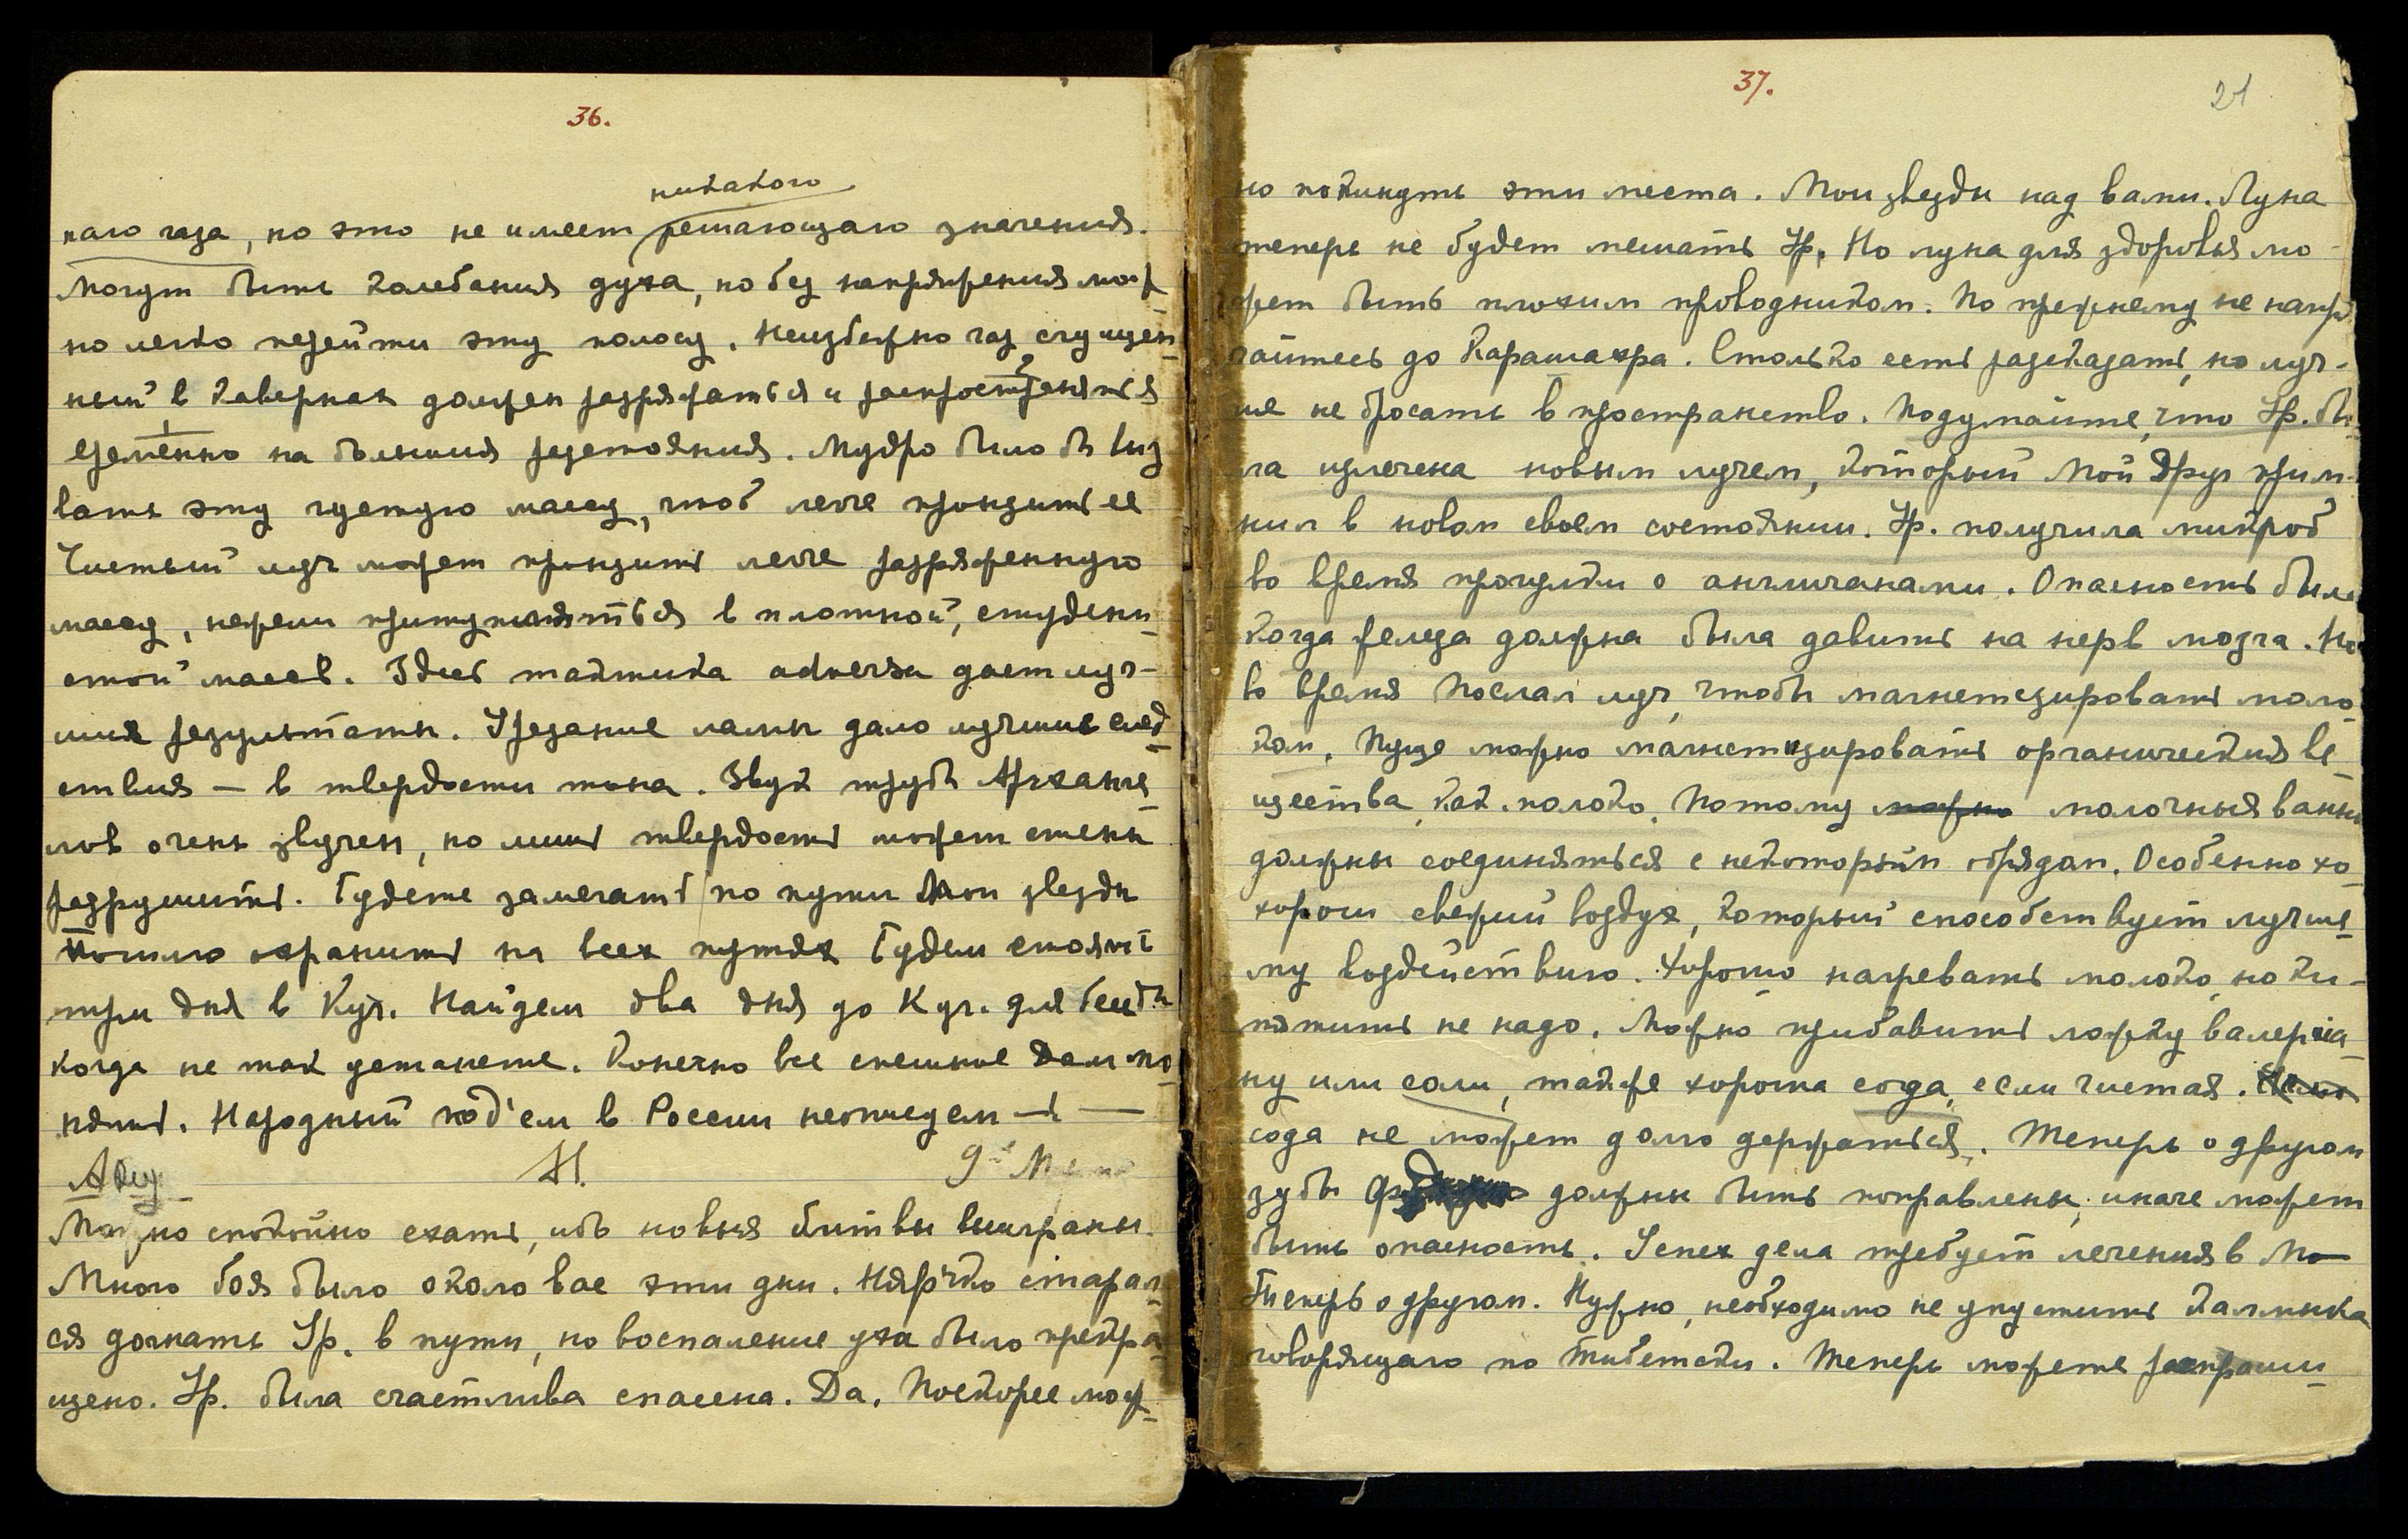 36.
никакого
наго газа, но это не имеет решающаго значения.
Могут быть колебания духа, но без напряжения мож
но легко перейти эту полосу. Неизбежно газ сгущен
ный в кавернах должен разряжаться и распространяться
временно на большия разстояния. Мудро было бы
вать эту густую массу, чтоб легче пронзить ее
Чистый луч может пронзить легче разряженную
массу, нежели притупляться в плотной, студени
стой массе. Здесь тактика adversa дает луч-
шия результаты. Урезание ламы дало лучшие след
ствия — в твердости тона. Звук трубы Арханге
лов очень звучен, но лишь твердость может стены
разрушить. Будете замечать по пути Мои звезды
хранить на всех путях Будем стоять
три дня в Куч. Найдем два дня до Куч. для беседы
когда не так устанете. Конечно все спешное
нять. Народный под'ем в России неописуем — —
Аксу М. 9е
Можно спокойно ехать, ибо новыя битвы выиграны.
Много боя было около вас эти дни. старал
ся догнать Ур. в пути, но воспаление уха было прекра
щено. Ур. была счастлива спасена. Да, Поскорее мож
37.
21
но покинуть эти места. Мои звезды над вами. Луна
теперь не будет мешать Ур. Но луна для здоровья мо-
жет быть плохим проводником. По прежнему не напря
гайтесь до Карашахра. Столько есть разсказать, но луч-
ше не бросать в пространство. Подумайте, что Ур. бы
ла излечена новым лучем, который Мой Друг приме
нил в новом своем состоянии. Ур. получила микроб
во время прогулки с англичанами. Опасность была
когда железа должна была давить на нерв мозга. Но
во время Послал луч, чтобы магнетизировать моло
ком. Пуще можно магнетизировать органическия ве
щества, как молоко. Потому можно молочныя ванны
должны соединяться с некоторым обрядом. Особенно хо
хорош свежий воздух, который способствует лучше
му воздействию. Хорошо нагревать молоко, но ки-
пятить не надо. Можно прибавить ложку валериа
ну или соли, также хороша сода, если чистая.
сода не может долго держаться. Теперь о другом
зубы должны быть поправлены, иначе может
быть опасность. Успех дела требует лечения в Мо
Теперь о другом. Нужно, необходимо не упустить калмыка
говорящаго по тибетски. Теперь можете распраши